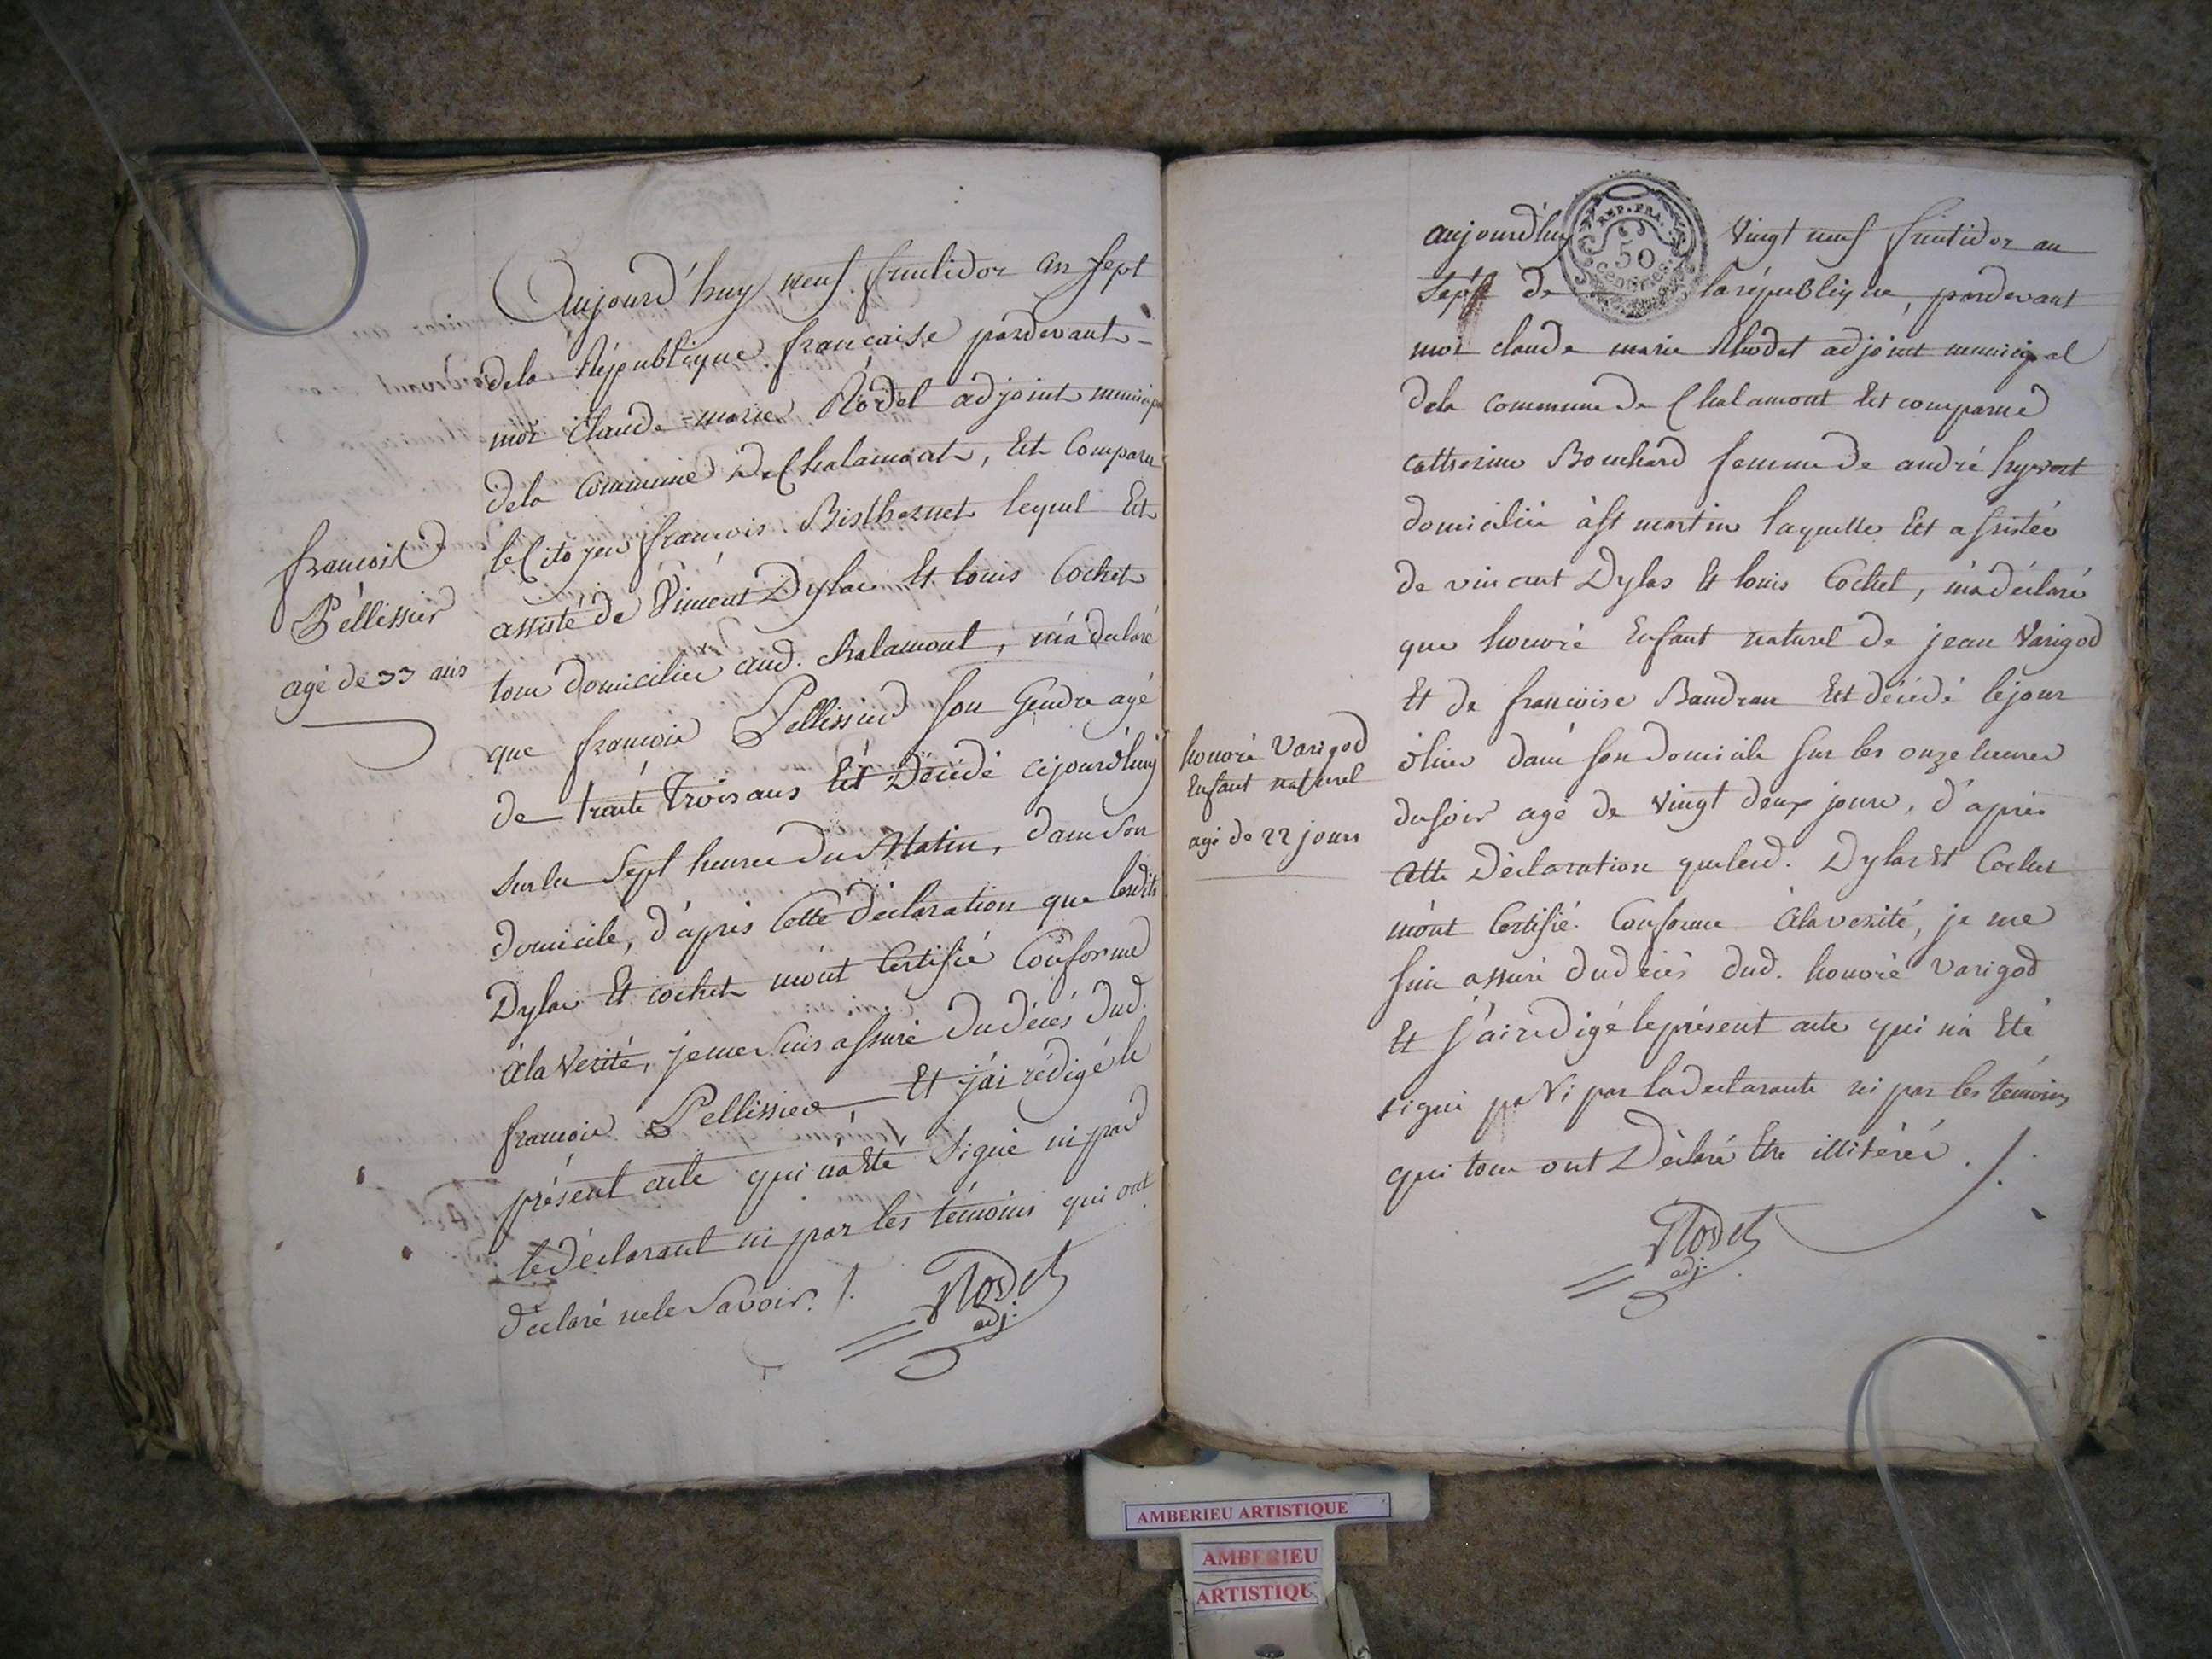 françois
Pellissier
agé de 33 ans
Aujourd'huy neuf fructidor an sept
dela République française pardevant
moi Claude-marie Rodet adjoint municipal
dela Commune De Chalamont, Est Comparu
le Citoyen françois Bisthernet lequel Est
assisté de Vincent Dylas Et louis Cochet
tous domiciliés aud. chalamont, m'a declaré
que françois Pellissier son Gendre agé
de trente trois ans Est Décédé cejourd'huy
sur les Sept heures du Matin, dans son
domicile, d'après Cette déclaration que lesdits
Dylas Et cochet m'ont Certifié Conforme
à la Verité, je me suis assuré du décès dud.
françois Pellissier, Et j'ai rédigé le
présent acte qui n'a Eté Signé ni par
le déclarant ni par les témoins qui ont
déclaré ne le Savoir. /.
Rodet
adj.
REP. FRA.
50
CENTIMES
aujourd'huy Vingt neuf fructidor an
Sept De la république, pardevant
moi claude marie Rhodet adjoint municipal
dela commune De Chalamont Est comparue
catherine Bouchard femme de andré hyvert
domiciliée à St martin laquelle Est assistée
de vincent Dylas Et louis Cochet, m'a déclaré
que honoré Enfant naturel de jean Varigod
Et de françoise Baudran Est décédé le jour
d'hier dans son domicile sur les onze heures
du soir agé de Vingt deux jours, d'après
cette Déclaration que lesd. Dylas Et Cochet
m'ont Certifié Conforme à la verité, je me
suis assuré du décès dud. honoré Varigod
Et j'ai redigé le présent acte qui n'a Eté
signé Ni par la declarante ni par les témoins
qui tous ont Déclaré Etre illitérés ./.
Rodet
adj.
honoré Varigod
Enfant naturel
agé de 22 jours
AMBERIEU ARTISTIQUE
AMBERIEU
ARTISTIQU